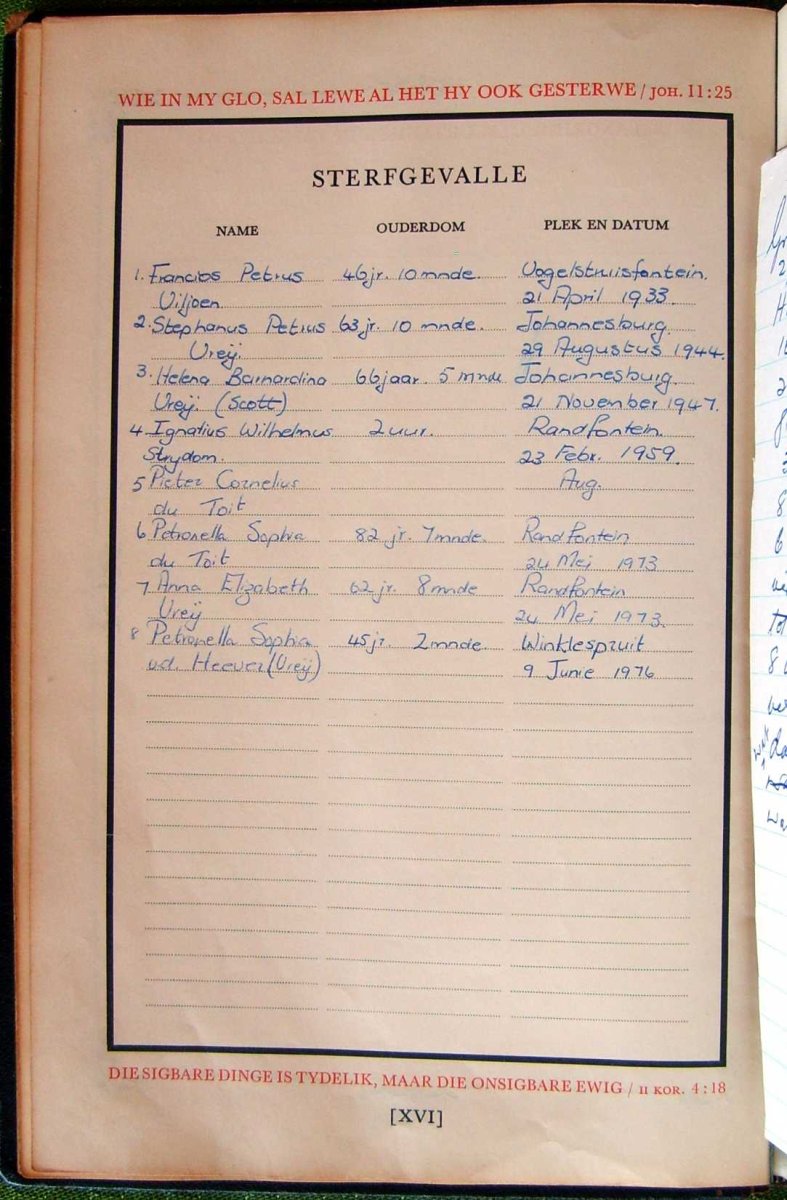 WIE IN MY GLO, SAL LEWE AL HET HY OOK GESTERWE / JOH. 11:25
STERFGEVALLE
NAME OUDERDOM PLEK EN DATUM
1. Francios Petrus 46jr. 10 mnde. Vogelstruisfontein.
Viljoen 21 April 1933.
2. Stephanus Petrus 63 jr. 10 mnde. Johannesburg.
Vreij. 29 Augustus 1944.
3. Helena Barnardina 66jaar. 5 mnde Johannesburg.
Vreij. (Scott) 21 November 1947.
4. Ignatius Wilhelmus 2 uur. Randfontein.
Strydom. 23 Febr. 1959.
5 Pieter Cornelius Aug.
du Toit
6 Petronella Sophia 82 jr. 7mnde. Randfontein
du Toit 24 Mei 1973
7 Anna Elizabeth 62 jr. 8mnde Randfontein
Vreij 24 Mei 1973.
8 Petronella Sophia 45jr. 2mnde. Winklespruit
v.d. Heever (Vreij) 9 Junie 1976
DIE SIGBARE DINGE IS TYDELIK, MAAR DIE ONSIGBARE EWIG / II KOR. 4:18
[XVI]